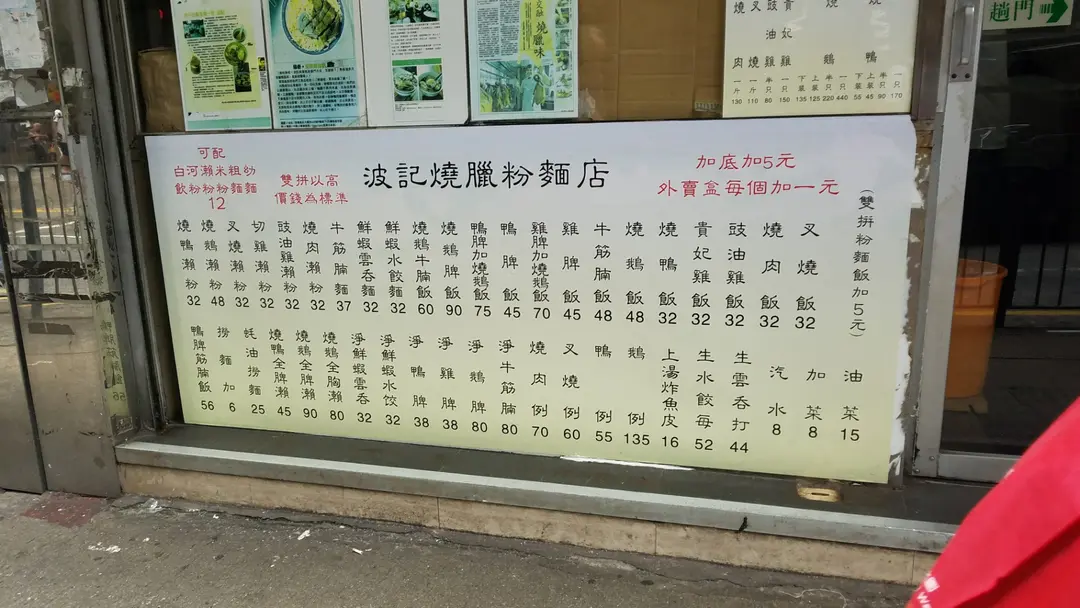 趟門
燒肉 一斤 130
叉燒 一斤 110
豉油雞 半只 80
貴妃雞 一只 150
燒鵝
135 125 220 440
燒鴨
55 45 90 170
波記燒臘粉麵店
可配
白河瀨米粗幼
飲粉粉粉麵麵
12
雙拼以高
價錢為標準
加底加5元
外賣盒每個加一元
(雙拼粉麵飯加5元)
叉燒飯 32
燒肉飯 32
豉油雞飯 32
貴妃雞飯 32
燒鴨飯 32
燒鵝飯 48
牛筋腩飯 48
雞脾飯 45
雞脾加燒鵝飯 70
鴨脾飯 45
鴨脾加燒鵝飯 75
燒鵝脾飯 90
燒鵝牛腩飯 60
鮮蝦水餃麵 32
鮮蝦雲吞麵 32
牛筋腩麵 37
燒肉瀨粉 32
豉油雞瀨粉 32
切雞瀨粉 32
叉燒瀨粉 32
燒鵝瀨粉 48
燒鴨瀨粉 32
油菜 15
加菜 8
汽水 8
生雲吞打 44
生水餃每 52
上湯炸魚皮 16
鵝例 135
鴨例 55
叉燒例 60
燒肉例 70
淨牛筋腩 80
淨鵝脾 80
淨雞脾 38
淨鴨脾 38
淨鮮蝦水饺 32
淨鮮蝦雲吞 32
燒鵝全胸瀨 80
燒鵝全脾瀨 90
燒鴨全脾瀨 45
蚝油撈麵 25
撈麵加 6
鴨脾筋腩飯 56